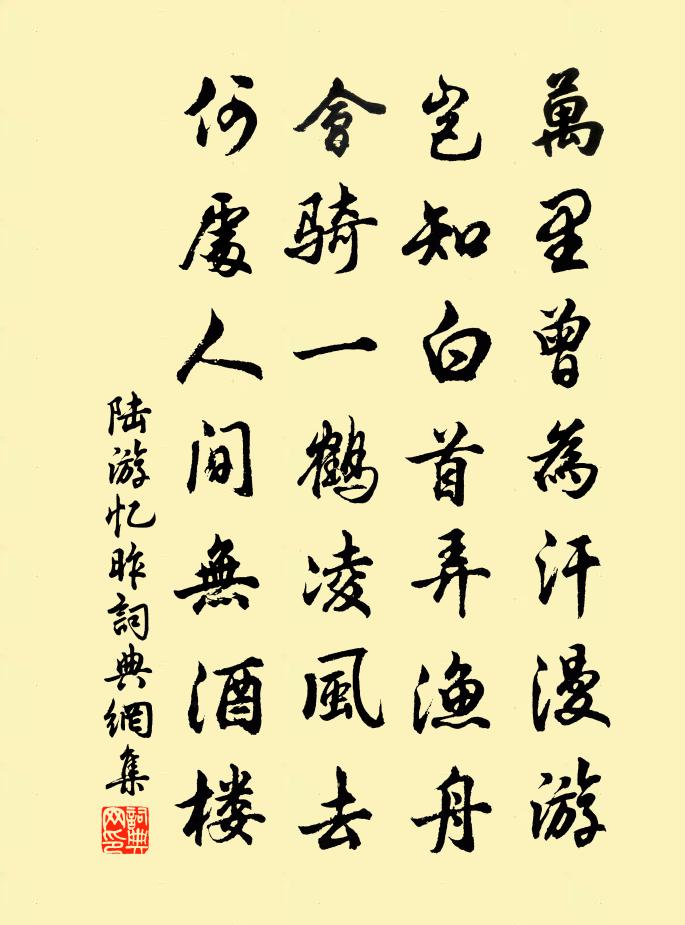 萬里曾為汗漫游
豈知白首弄漁舟
會騎一鶴凌風去
何處人间無酒楼
陆游忆昨詞典網集
詞典网印